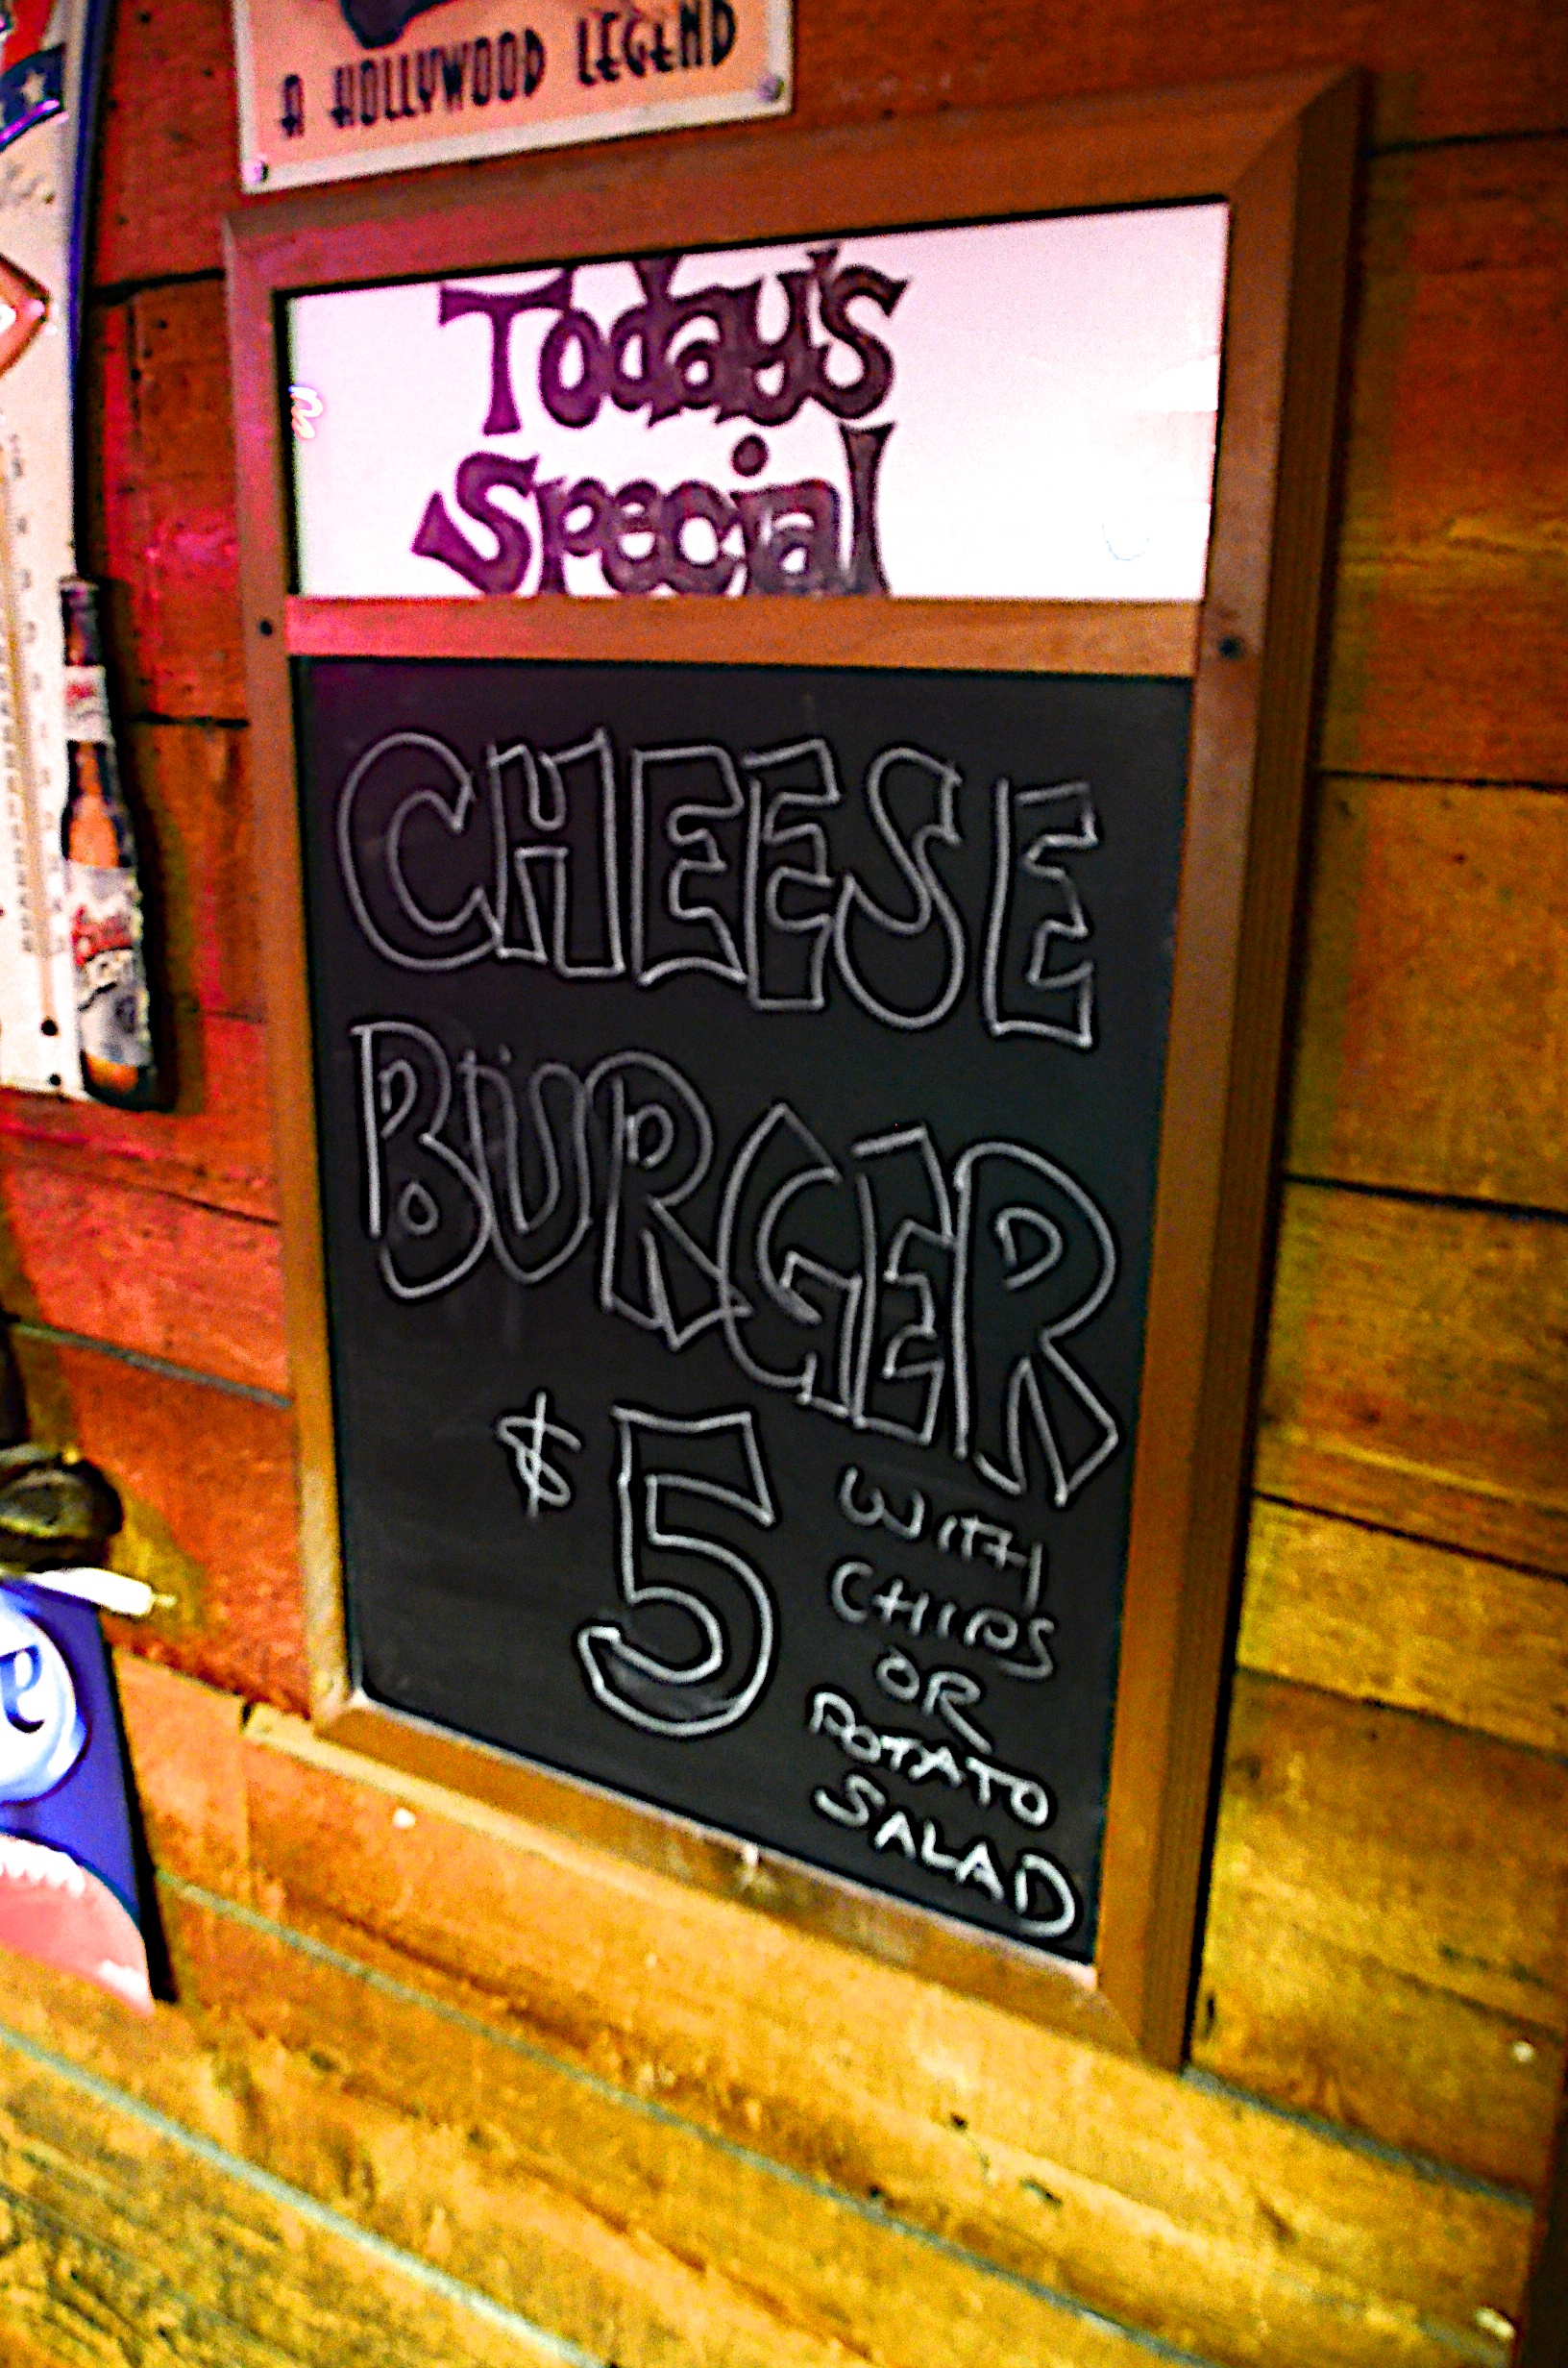 A HOLLYWOOD LEGEND
Today's
Special
CHEESE
BURGER
$5
WITH
CHIPS
OR
POTATO
SALAD